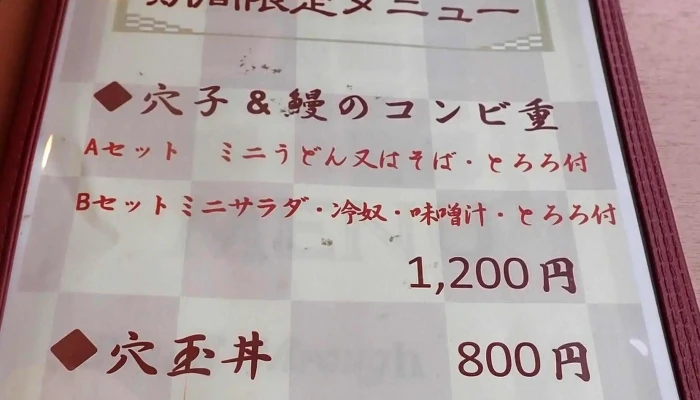 期間限定メニュー
◆穴子&鰻のコンビ重
Aセット ミニうどん又はそば・とろろ付
Bセットミニサラダ・冷奴・味噌汁・とろろ付
1,200円
◆穴玉丼 800円